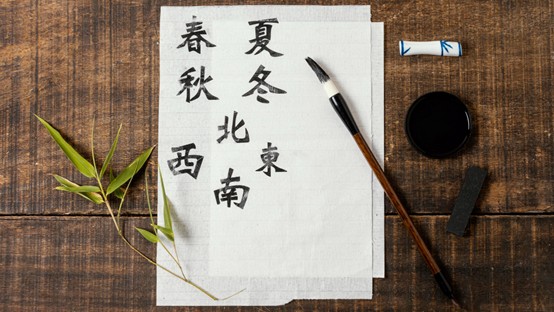 春夏
秋冬
北
西東
南